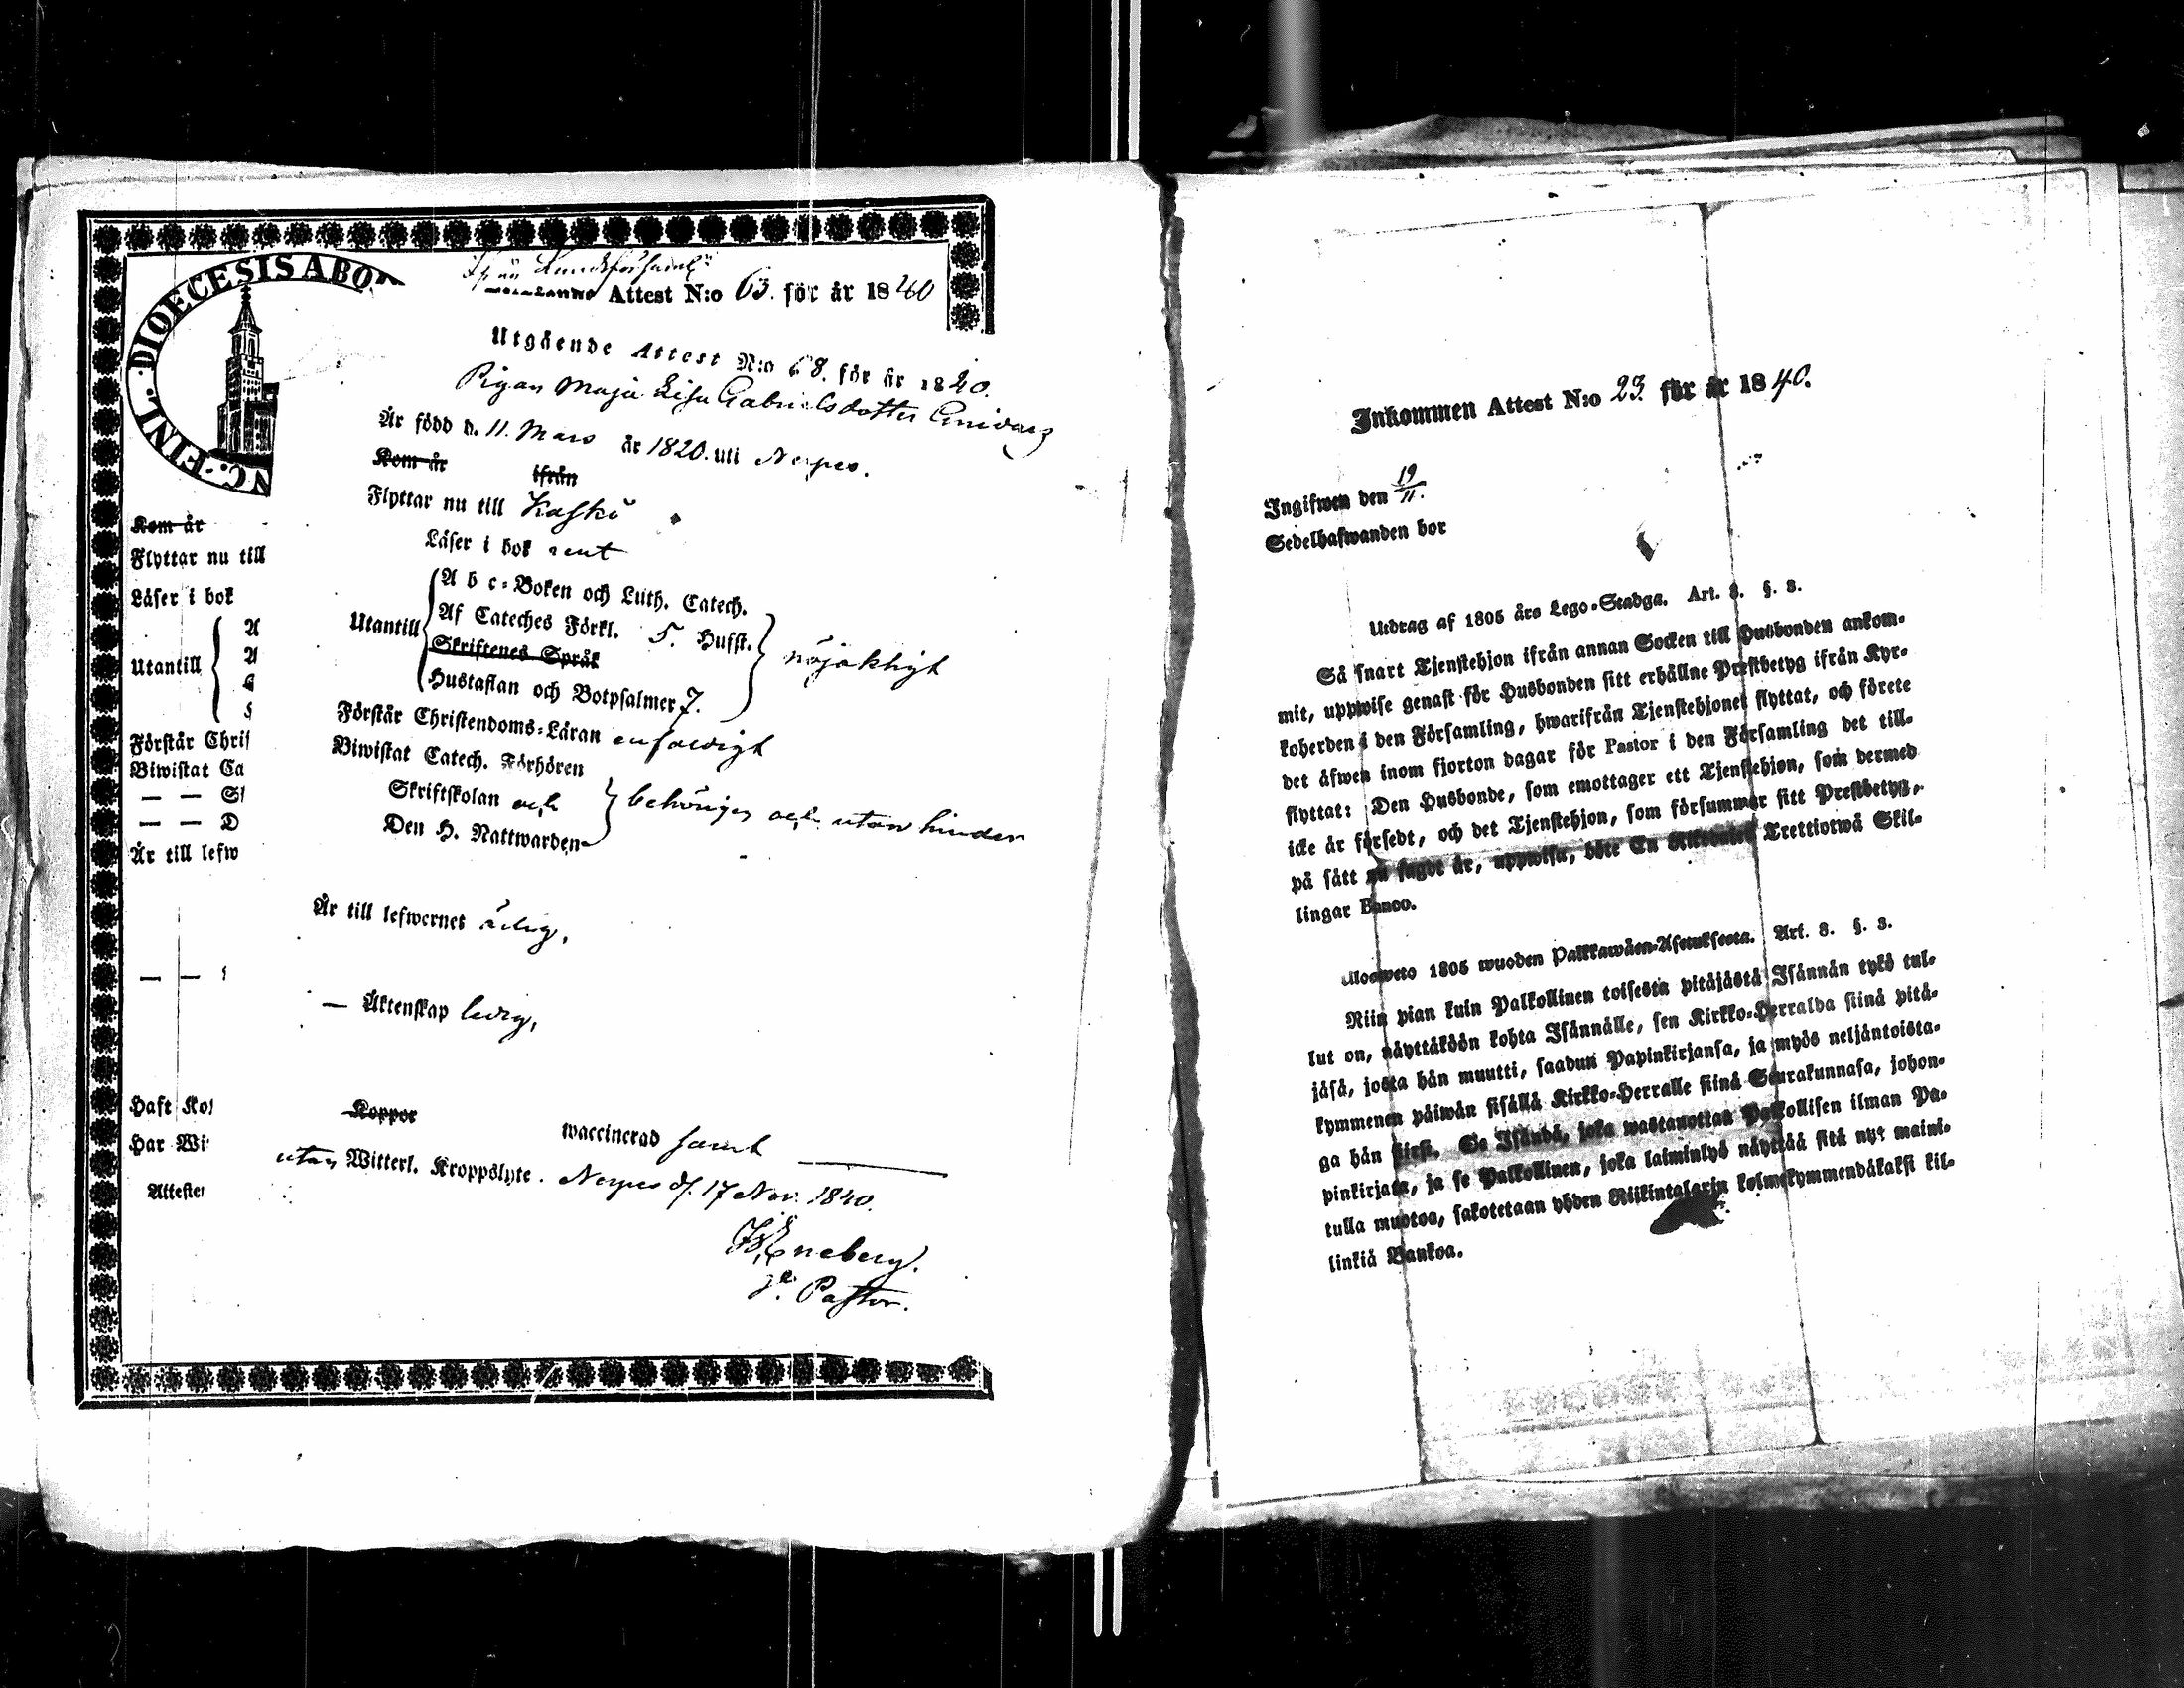 DIOECESIS ABO
NC. FINL.
Attest N:o 63. för år 1840
Utgående Attest N:o 68. för år 1840.
Pigan Maja Lisa Gabrielsdotter
Är född d. 11. Mars år 1820. uti Nerpes.
Kom år ifrån
Flyttar nu till Kaskö
Läser i bok rent
Utantill
A b c-Boken och Luth. Catech.
Af Cateches Förkl. 5. Hufst.
Skriftenes Språk
Hustaflan och Botpsalmer 7.
nöjaktigt
Förstår Christendoms-Läran enfaldigt
Biwistat Catech. Förhören
Skriftskolan och
Den H. Nattwarden
behörigen och utan hinder
Är till lefwernet ärlig,
— Äktenskap ledig,
Koppor
waccinerad samt
utan Witterl. Kroppslyte. Nerpes d. 17 Nov. 1840.
Eneberg.
Pastor.
Kom år
Flyttar nu till
Läser i bok
Utantill
A
A
Förstår Chris
Biwistat Ca
— — S
— — D
Är till lefw
— —
Haft Ko
Har Wi
Attester
Inkommen Attest N:o 23 för år 1840.
Ingifwen den 19/11.
Sedelhafwanden bor
Utdrag af 1805 års Lego-Stadga. Art. 8. §. 3.
Så snart Tjenstehjon ifrån annan Socken till Husbonden ankom-
mit, uppwise genast för Husbonden sitt erhållne Prestbetyg ifrån Kyr-
koherden i den Församling, hwarifrån Tjenstehjonet flyttat, och förete
det äfwen inom fjorton dagar för Pastor i den Församling det till-
flyttat: Den Husbonde, som emottager ett Tjenstehjon, som dermed
icke är försedt, och det Tjenstehjon, som försummar sitt Prestbetyg,
på sätt nu sagdt är, uppwisa, böte En Riksdaler Trettiotwå Skil-
lingar Banco.
Ulosweto 1805 wuoden Palkkawäen-Asetuksesta. Art. 8. §. 3.
Niin pian kuin Palkollinen toisesta pitäjästä Isännän tykö tul-
lut on, näyttäköön kohta Isännälle, sen Kirkko-Herralda siinä pitä-
jäsä, josta hän muutti, saadun Papinkirjansa, ja myös neljäntoista-
kymmenen päiwän sisällä Kirkko-Herralle siinä Seurakunnasa, johon-
ga hän siirsi. Se Isändä, joka wastanottaa Palkollisen ilman Pa-
pinkirjata, ja se Palkollinen, joka laiminlyö näyttää sitä nyt maini-
tulla muotoa, sakotetaan yhden Riikintalarin kolmekymmendäkaksi kil-
linkiä Bankoa.